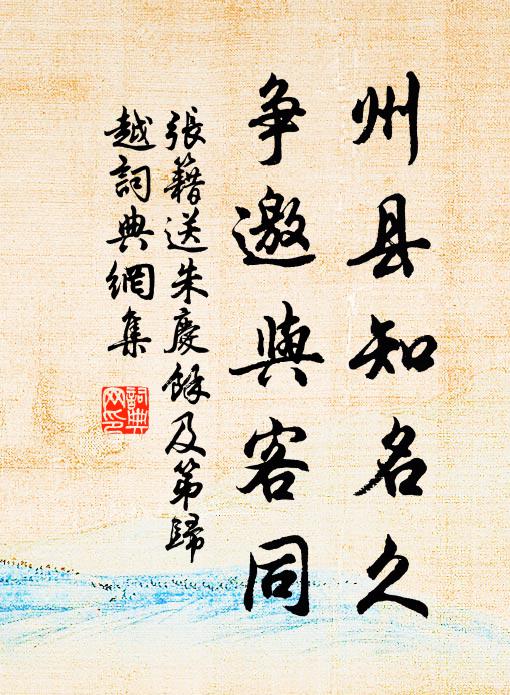 州县知名久
争邀與客同
張籍送朱慶餘及第歸
越詞典網集
詞典網印